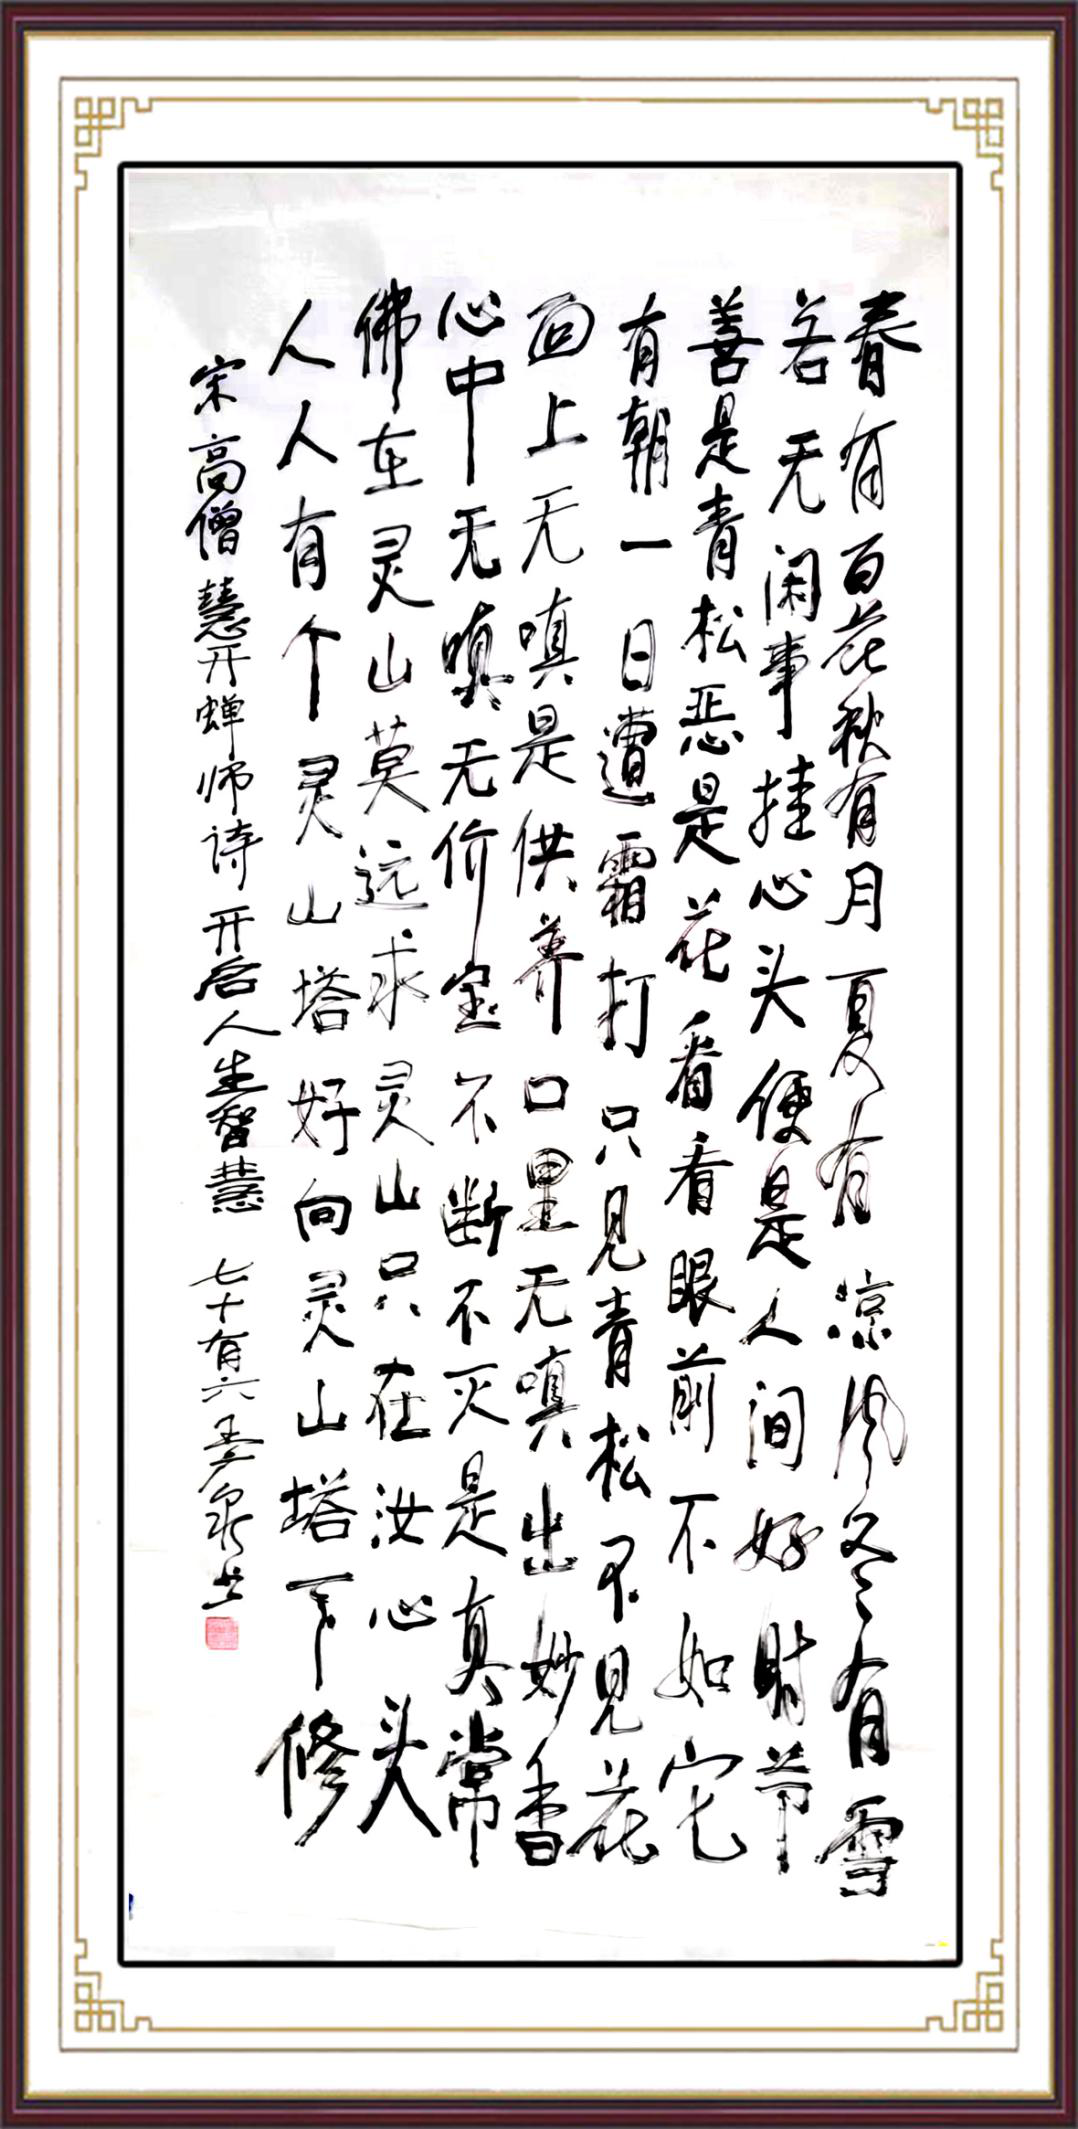 春有百花秋有月夏有凉风冬有雪
若无闲事挂心头便是人间好时节
善是青松恶是花看看眼前不如它
有朝一日遭霜打只见青松不见花
面上无嗔是供养口里无嗔出妙香
心中无嗔无价宝不断不灭是真常
佛在灵山莫远求灵山只在汝心头
人人有个灵山塔好向灵山塔下修
宋高僧慧开蝉师诗开启人生智慧 七十有六